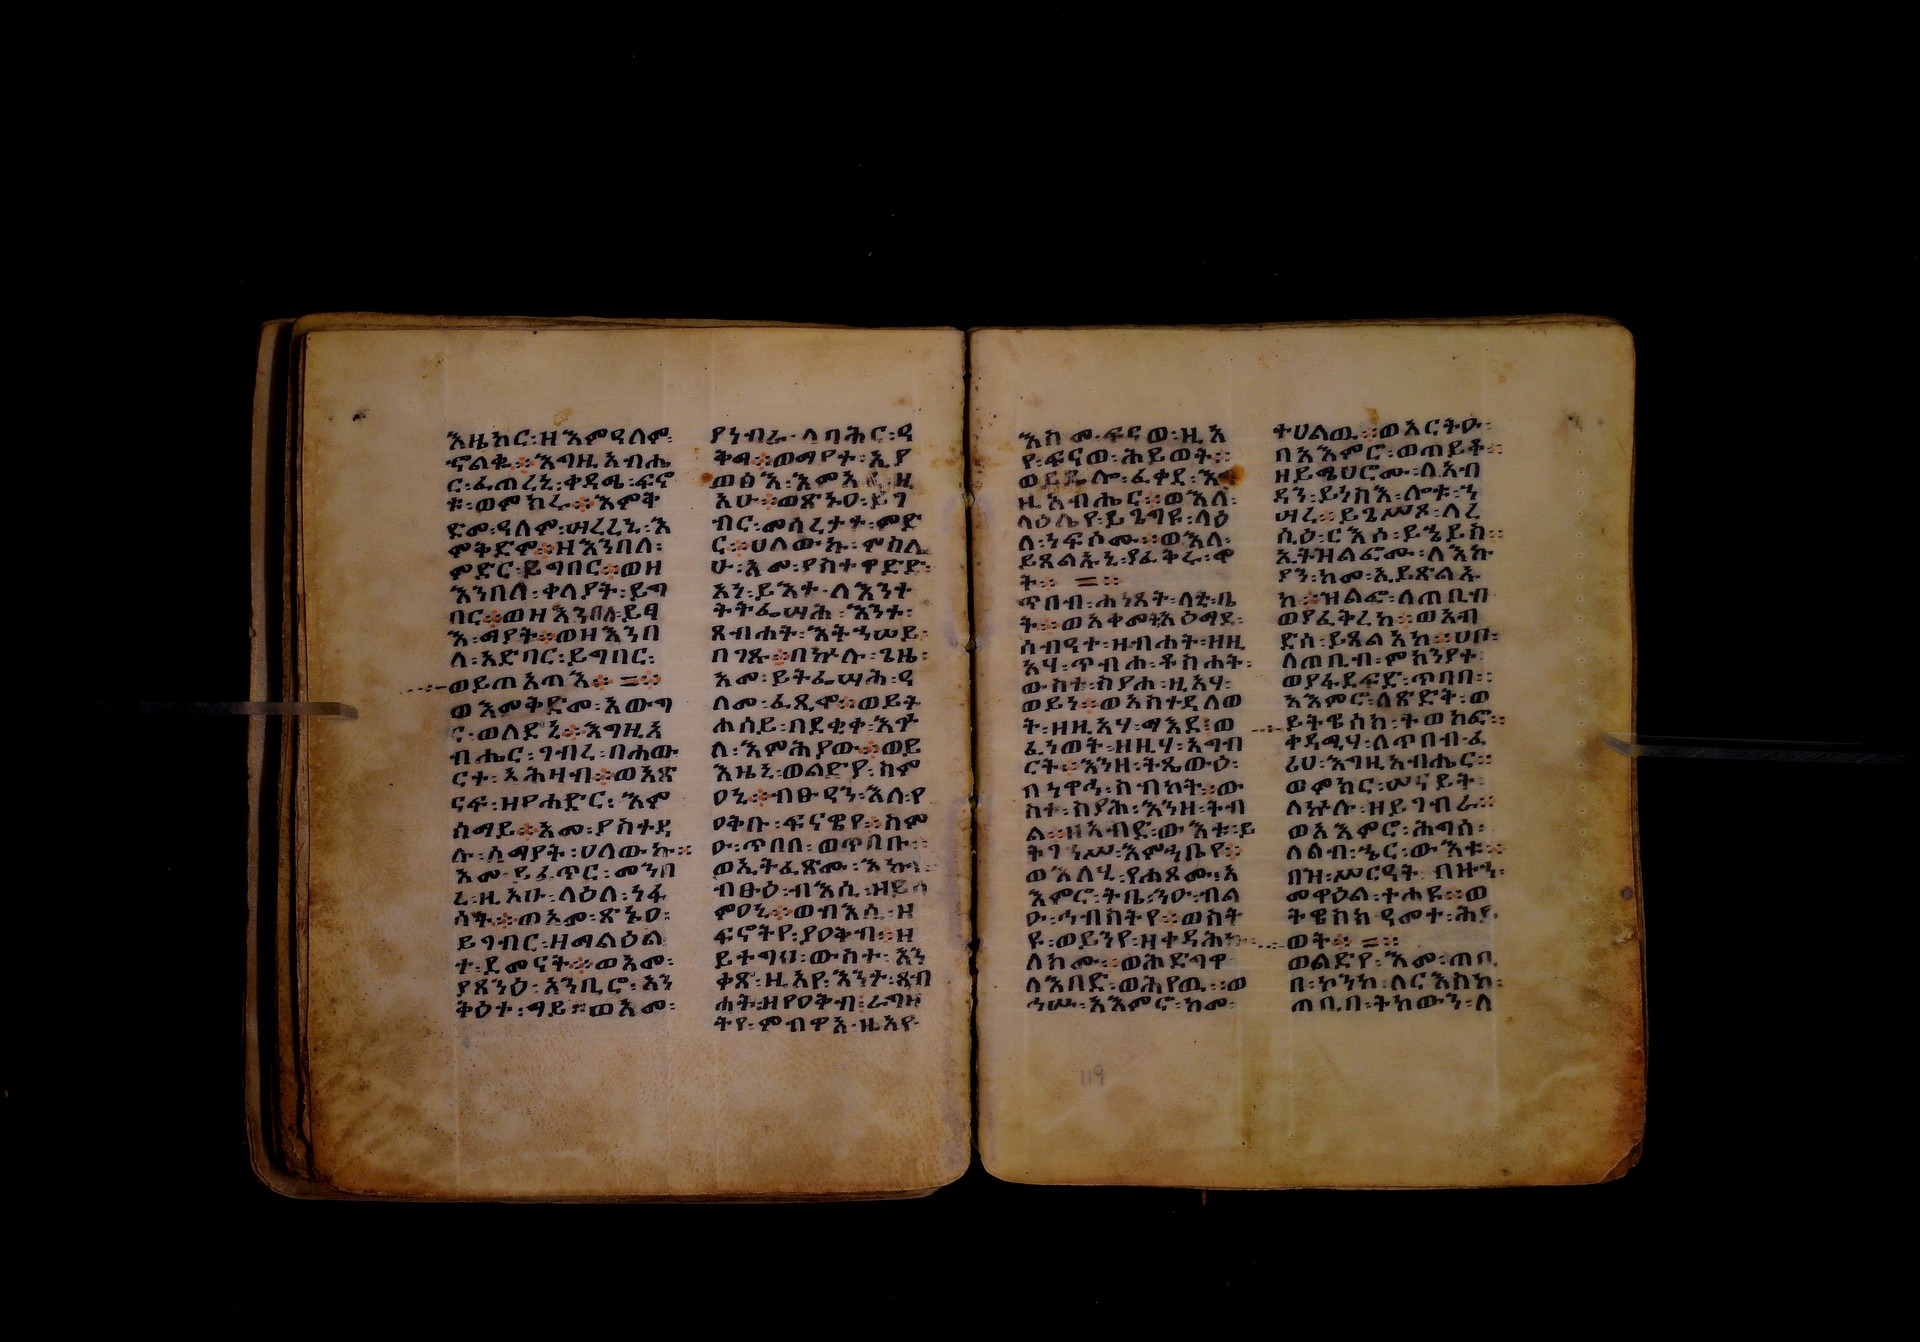 እዜከር፡ዘእምዓለም፡
ኆልቁ፨እግዚአብሔ
ር፡ፈጠረኒ፡ቀዳሜ፡ፍኖ
ቱ፡ወምክሩ፨እምቅ
ድመ፡ዓለም፡ሣረረኒ፡እ
ምቅድም፨ዘእንበለ፡
ምድር፡ይግበር፨ወዘ
እንበለ፡ቀላያት፡ይግ
በር፨ወዘእንበለ፡ይፃ
እ፡ማያት፨ወዘእንበ
ለ፡አድባር፡ይግበር፡
ወይጠአጠእ፨ =፨
ወእምቅድመ፡አውግ
ር፡ወለደኒ፨እግዚአ
ብሔር፡ገብረ፡በሐው
ርተ፡አሕዛብ፨ወአጽ
ናፍ፡ዘየሐድር፡እም
ሰማይ፨አመ፡ያስተዴ
ሉ፡ሰማያት፡ሀለውኩ፨
አመ፡ይፈጥር፡መንበ
ረ፡ዚአሁ፡ላዕለ፡ነፋ
ሳት፨ወአመ፡ጽኑዐ፡
ይገብር፡ዘማልዕል
ተ፡ደመናት፨ወአመ፡
ያጸንዕ፡አንቢሮ፡አን
ቅዕተ፡ማይ፨ወአመ፡
ያነብራ፡ላባሕር፡ዳ
ቅቃ፨ወማየተ፡ኢያ
ወፅእ፡እምአ ዚ
አሁ፨ወጽኑዐ፡ይገ
ብር፡መሰረታተ፡ምድ
ር፨ሀለውኩ፡ምስሌ
ሁ፡አመ፡ያስተዋድድ፡
አነ፡ይእተ፡ለእንተ
ትትፌሣሕ፡እንተ፡
ጸብሐት፡እትኀሠይ፡
በገጹ፨በኵሉ፡ጊዜ፡
አመ፡ይትፌሣሕ፡ዓ
ለመ፡ፈጺሞ፨ወይት
ሐሰይ፡በደቂቀ፡እጓ
ለ፡እምሕያው፨ወይ
እዜኒ፡ወልድየ፡ስም
ዐኒ፨ብፁዓን፡እለ፡የ
ዐቅቡ፡ፍናዌየ፨ስም
ዑ፡ጥበበ፡ወጥበቡ፨
ወኢትፈጽሙ፡እኩየ፡
ብፁዕ፡ብእሲ፡ዘይሰ
ምዐኒ፨ወብእሲ፡ዘ
ፍኖትየ፡ያዐቅብ፨ዘ
ይተግህ፡ውስተ፡አን
ቀጽ፡ዚአየ፡እንተ፡ጸብ
ሐት፡ዘየዐቅብ፡ራግዘ
ትየ፡ምብዋእ፡ዚአየ፡
እስመ፡ፍናወ፡ዚአ
የ፡ፍናወ፡ሕይወት፨
ወይዴሎ፡ፈቀደ፡እግ
ዚአብሔር፨ወእለ፡
ላዕሌየ፡ይጌግዩ፡ላዕ
ለ፡ነፍሶሙ፨ወእለ፡
ይጸልኡኒ፡ያፈቅሩ፡ሞ
ት፨ =፨
ጥበብ፡ሐነጸት፡ላቲ፡ቤ
ት፨ወአቀመት፡አዕማደ፡
ሰብዓተ፡ዘብሐት፡ዘዚ
አሃ፡ጥብሐ፡ቶስሐት፡
ውስተ፡ስያሐ፡ዚአሃ፡
ወይነ፨ወአስተዳለወ
ት፡ዘዚአሃ፡ማእደ፡ወ
ፈነወት፡ዘዚሃ፡አግብ
ርት፨እንዘ፡ትጼውዕ፡
በነዋኅ፡ስብከት፡ው
ስተ፡ስያሕ፡እንዘ፡ትብ
ል፨ዘአብድ፡ውእቱ፡ይ
ትገኀሥ፡እምኀቤየ፨
ወእለሂ፡የሐጸሙ፡አ
እምሮ፡ትቤ፡ንዑ፡ብል
ዑ፡ኅብስትየ፨ወስት
ዩ፡ወይንየ፡ዘቀዳሕኩ፡
ለክሙ፡ወሕድግዋ
ለእበድ፡ወሕየዉ፨ወ
ኅሡ፡አእምሮ፡ከመ፡
ተሀልዉ፨ወአርትዑ፡
በአእምሮ፡ወጠይቆ፨
ዘይሜህሮሙ፡ለእብ
ዳን፡ይነስእ፡ሎቱ፡ኀ
ሣረ፨ይጌሥጾ፡ለረ
ሲዕ፡ርእሰ፡ይኄይስ፨
ኢትዝልፎሙ፡ለእኩ
ያን፡ከመ፡ኢይጽልኡ
ከ፨ዝልፎ፡ለጠቢብ
ወያፈቅረከ፨ወአብ
ድሰ፡ይጸልአከ፨ሀቦ፡
ለጠቢብ፡ምክንያተ፡
ወያፋደፍድ፡ጥበበ፨
አእምሮ፡ለጽድቅ፡ወ
ይትዌሰክ፡ትወክፎ፨
ቀዳሚሃ፡ለጥበብ፡ፈ
ሪሀ፡እግዚአብሔር፨
ወምክር፡ሠናይት፡
ለኵሉ፡ዘይገብራ፨
ወአእምሮ፡ሕግሰ፡
ለልብ፡ኄር፡ውእቱ፨
በዝ፡ሥርዓት፡ብዙኀ፡
መዋዕል፡ተሐዩ፨ወ
ትዌስክ፡ዓመተ፡ሕይ
ወት፨ =፨
ወልድየ፡እመ፡ጠቢ
በ፡ኮንከ፡ለርእስከ፡
ጠቢበ፡ትከውን፡ለ
119